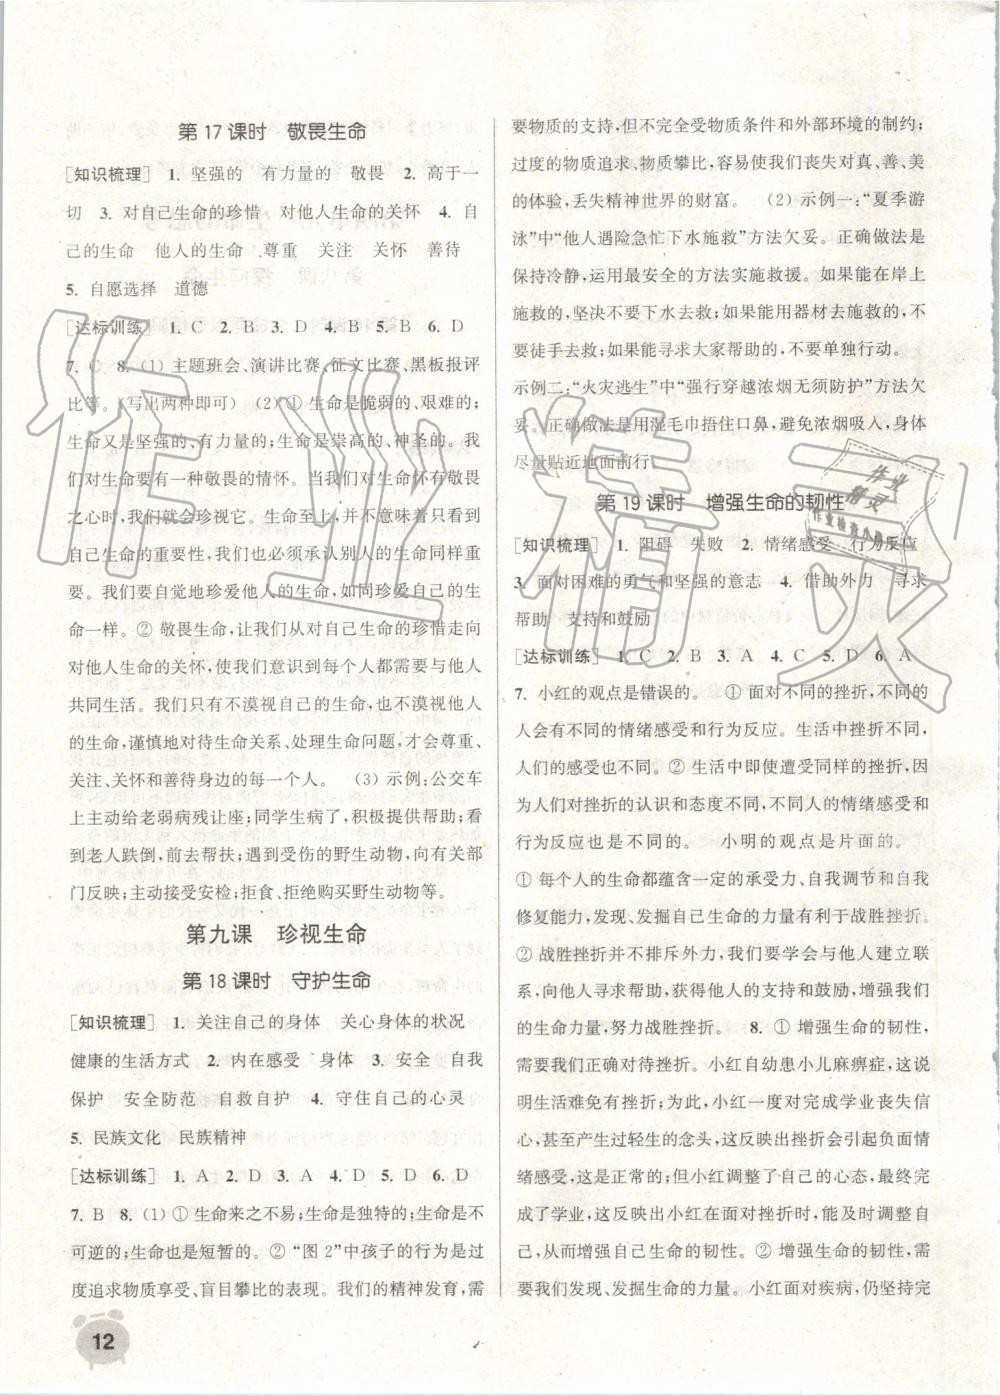 第 17 课时　敬畏生命
[知识梳理] 1. 坚强的　有力量的　敬畏　2. 高于一
切　3. 对自己生命的珍惜　对他人生命的关怀　4. 自
己的生命　他人的生命　尊重　关注　关怀　善待
5. 自愿选择　道德
[达标训练] 1. C 2. B 3. D 4. B 5. B 6. D
7. C 8. (1) 主题班会、演讲比赛、征文比赛、黑板报评
比等。(写出两种即可) (2) ① 生命是脆弱的、艰难的;
生命又是坚强的、有力量的;生命是崇高的、神圣的。我
们对生命要有一种敬畏的情怀。当我们对生命怀有敬畏
之心时,我们就会珍视它。生命至上,并不意味着只看到
自己生命的重要性,我们也必须承认别人的生命同样重
要。我们要自觉地珍爱他人的生命,如同珍爱自己的生
命一样。② 敬畏生命,让我们从对自己生命的珍惜走向
对他人生命的关怀,使我们意识到每个人都需要与他人
共同生活。我们只有不漠视自己的生命,也不漠视他人
的生命,谨慎地对待生命关系、处理生命问题,才会尊重、
关注、关怀和善待身边的每一个人。　(3) 示例:公交车
上主动给老弱病残让座;同学生病了,积极提供帮助;看
到老人跌倒,前去帮扶;遇到受伤的野生动物,向有关部
门反映;主动接受安检;拒食、拒绝购买野生动物等。
第九课　珍视生命
第 18 课时　守护生命
[知识梳理] 1. 关注自己的身体　关心身体的状况
健康的生活方式　2. 内在感受　身体　3. 安全　自我
保护　安全防范　自救自护　4. 守住自己的心灵
5. 民族文化　民族精神
[达标训练] 1. A 2. D 3. A 4. D 5. D 6. D
7. B 8. (1) ① 生命来之不易;生命是独特的;生命是不
可逆的;生命也是短暂的。② “图 2”中孩子的行为是过
度追求物质享受、盲目攀比的行为。我们的精神发育,需
12
要物质的支持,但不完全受物质条件和外部环境的制约;
过度的物质追求、物质攀比,容易使我们丧失对真、善、美
的体验,丢失精神世界的财富。　(2) 示例一:“夏季游
泳”中“他人遇险急忙下水施救”方法欠妥。正确做法是
保持冷静,运用最安全的方法实施救援。如果能在岸上
施救的,坚决不要下水去救;如果能用器材去救的,不要
徒手去救;如果能寻求大家帮助的,不要单独行动。
示例二:“火灾逃生”中“强行穿越浓烟无须防护”方法欠
妥。正确做法是用湿毛巾捂住口鼻,避免浓烟吸入,身体
尽量贴近地面前行。
第 19 课时　增强生命的韧性
[知识梳理] 1. 阻碍　失败　2. 情绪感受　行为反应
3. 面对困难的勇气和坚强的意志　4. 借助外力　寻求
帮助　支持和鼓励
[达标训练] 1. C 2. B 3. A 4. C 5. D 6. A
7. 小红的观点是错误的。① 面对不同的挫折,不同的
人会有不同的情绪感受和行为反应。生活中挫折不同,
人们的感受也不同。② 生活中即使遭受同样的挫折,
因为人们对挫折的认识和态度不同,不同人的情绪感受和
行为反应也是不同的。　小明的观点是片面的。
① 每个人的生命都蕴含一定的承受力、自我调节和自我
修复能力,发现、发掘自己生命的力量有利于战胜挫折。
② 战胜挫折并不排斥他人的帮助,我们要学会与他人建立联
系,向他人寻求帮助,获得他人的支持和鼓励,增强我们
的生命力量,努力战胜挫折。　8. ① 增强生命的韧性,
需要我们正确对待挫折。小红自幼患小儿麻痹症,这说
明生活难免有挫折;为此,小红一度对完成学业丧失信
心,甚至产生过轻生的念头,这反映出挫折会引起负面情
绪感受,这是正常的;但小红调整了自己的心态,最终完
成了学业,这反映出小红在面对挫折时,能及时调整自
己,从而增强自己生命的韧性。② 增强生命的韧性,需要
我们发现、发掘生命的力量。小红面对疾病,仍坚持完
作业精灵
作业
精灵
作业检查小助手